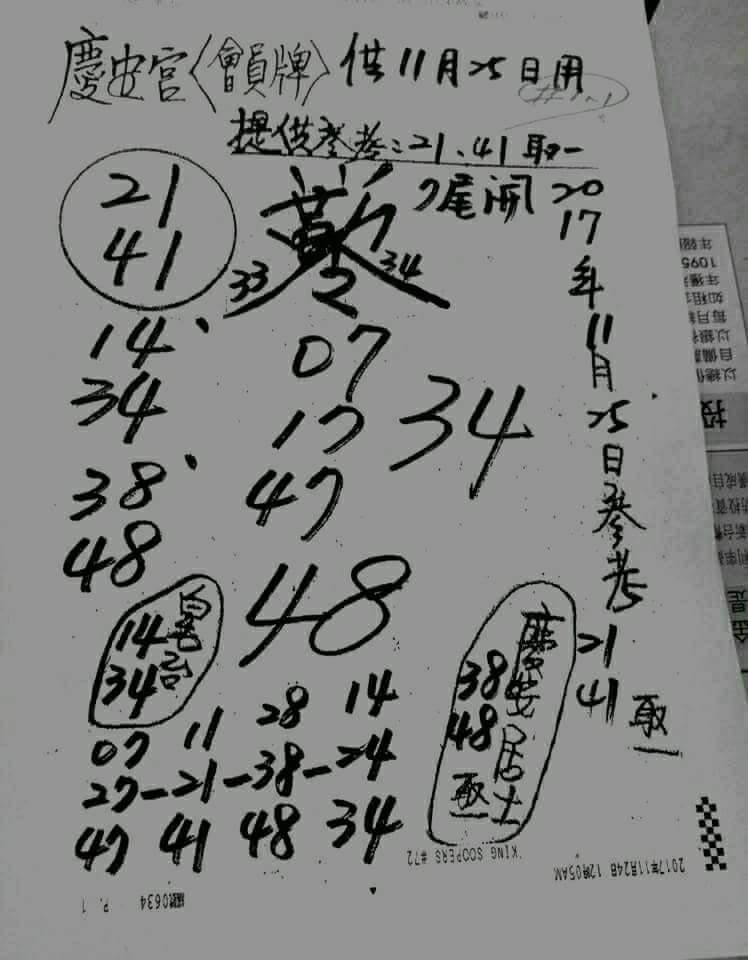 慶安宮〈會員牌〉供11月25日用
提供參考:21、41取一
7尾開
21
41
33
34
14、
34
38、
48
07
17
47
34
48
2017年11月25日參考
21
41
取一
14
34
慶安居士
38
48
取一
07 11 28 14
27-21-38-24
47 41 48 34
KING SOOPERS #72
2017年11月24日 12時05AM
0634 P. 1
年報
1095
年獲
如租
每月
以銀行
自備
以總
投